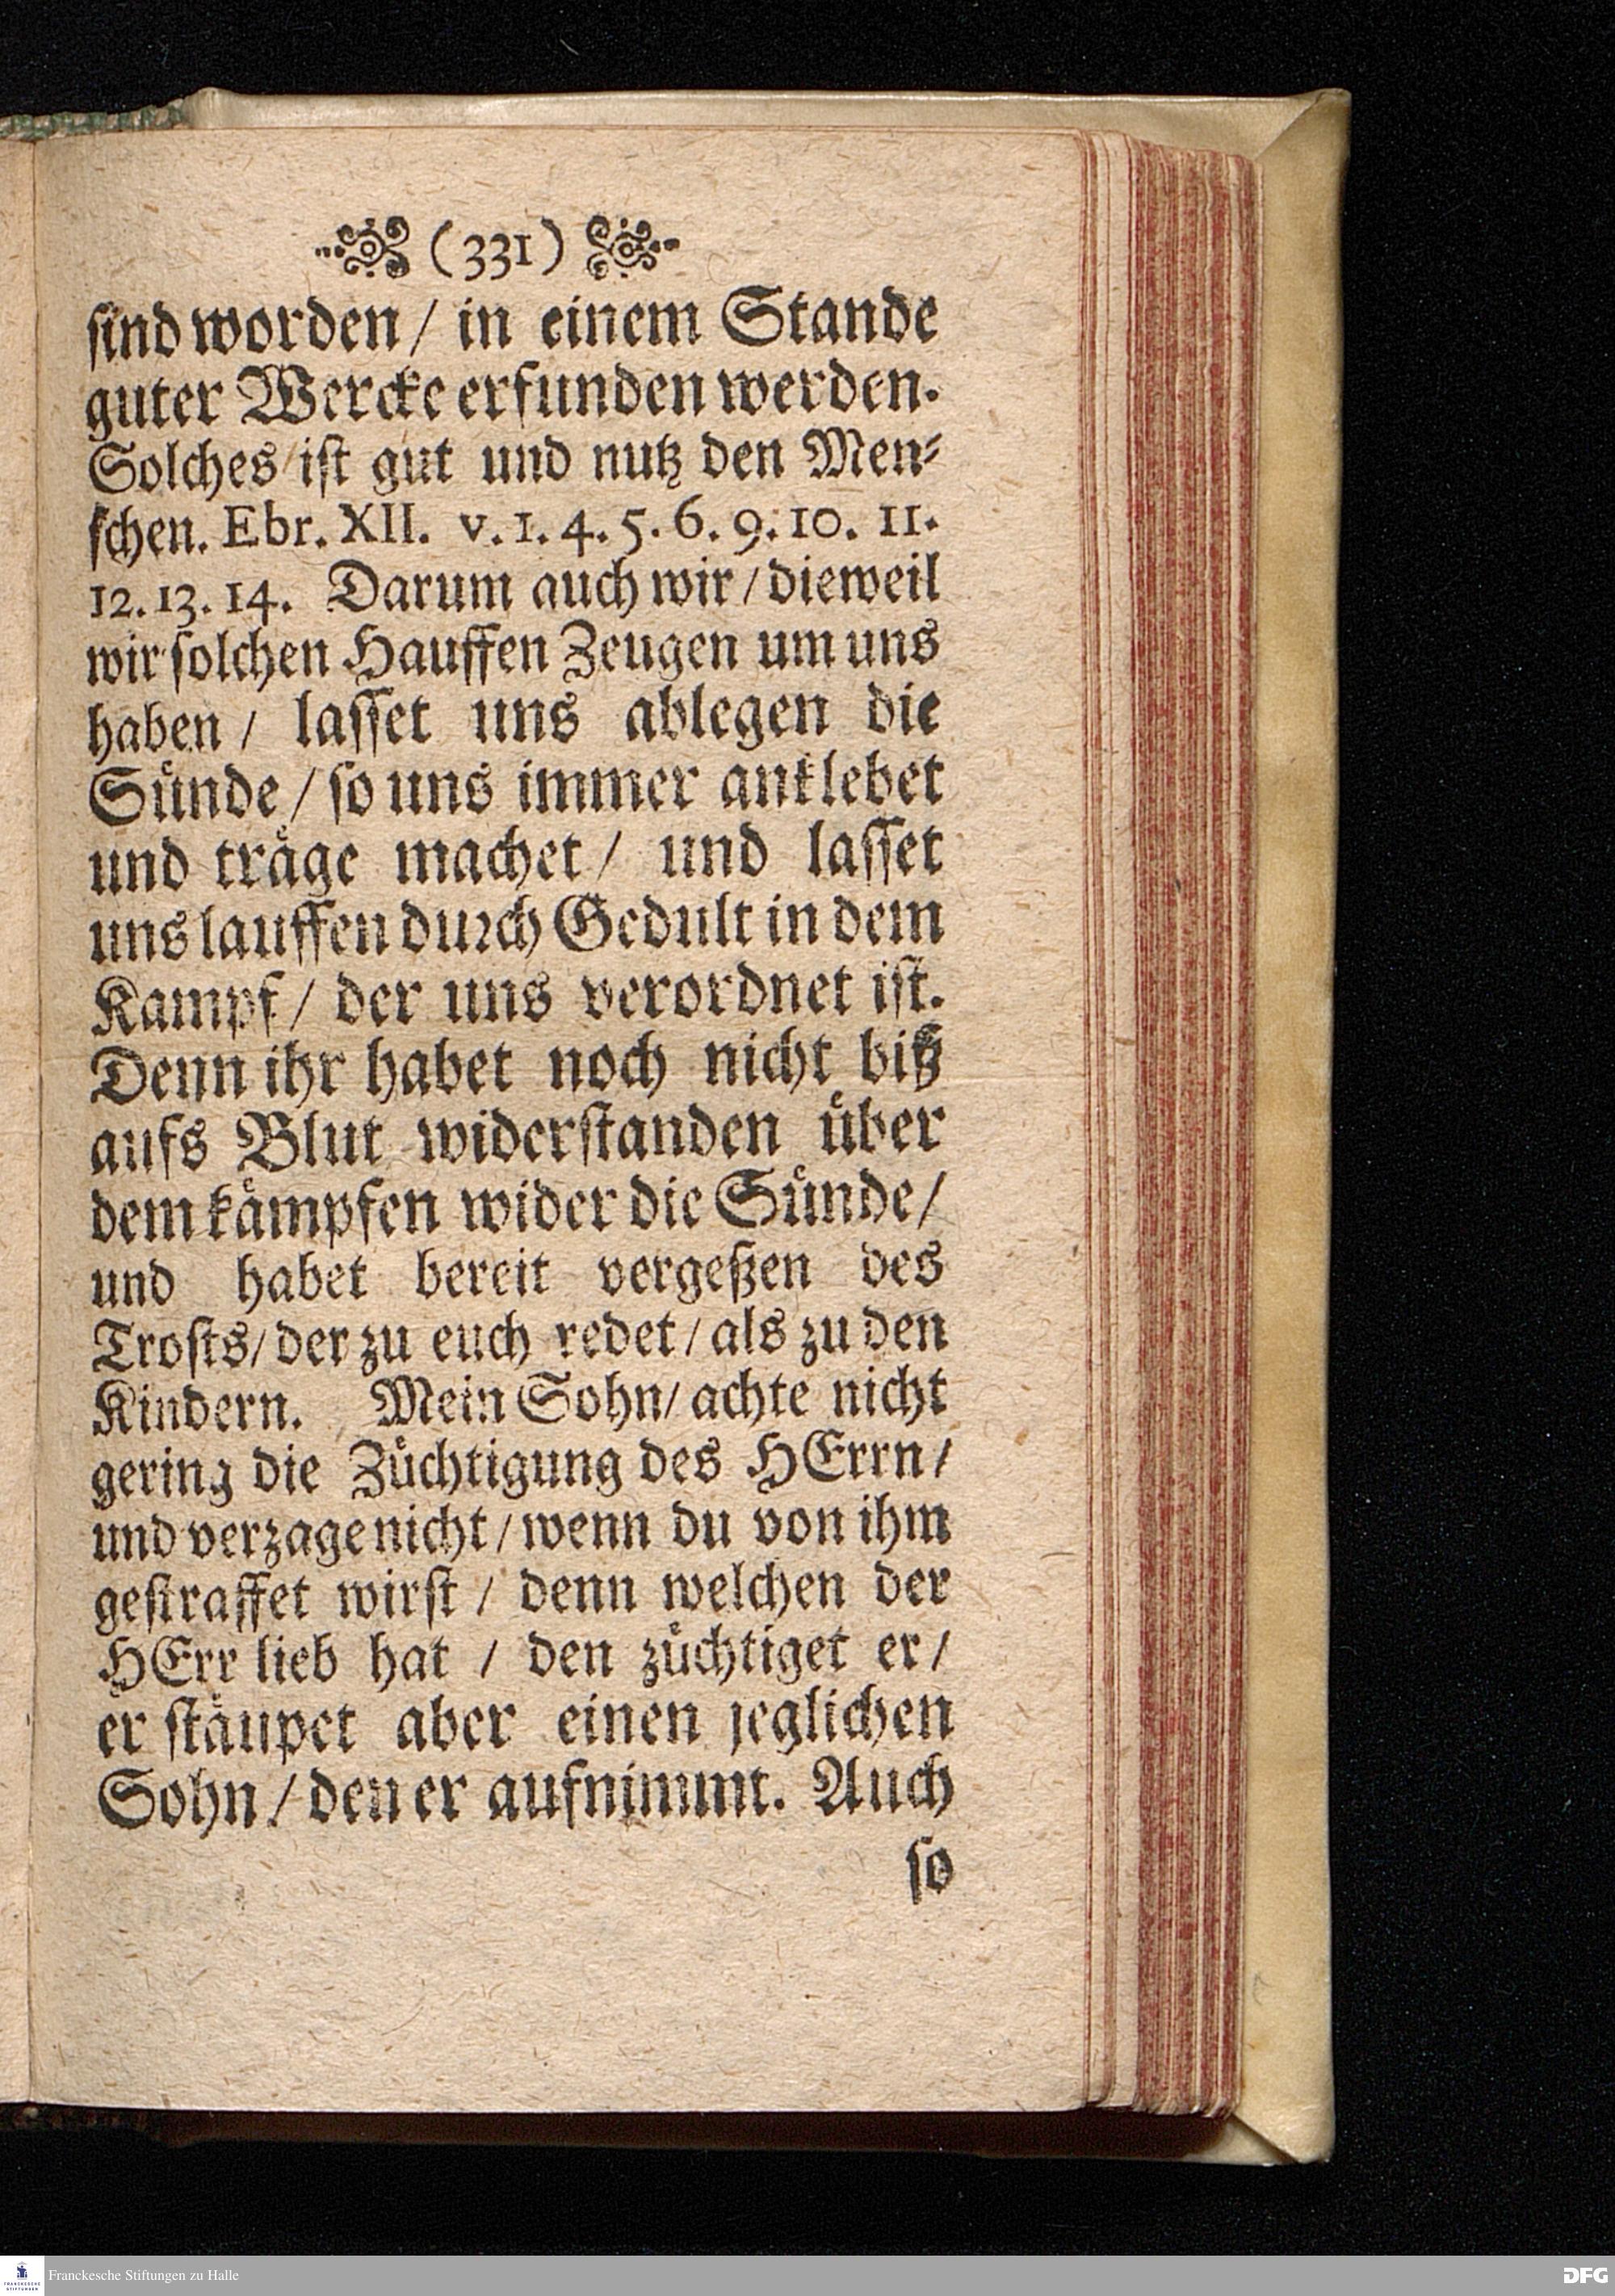 (331)
sind worden / in einem Stande
guter Wercke erfunden werden.
Solches ist gut und nutz den Men-
schen. Ebr. XII. v. 1. 4. 5. 6. 9. 10. 11.
12. 13. 14. Darum auch wir / dieweil
wir solchen Hauffen Zeugen um uns
haben / lasset uns ablegen die
Sünde / so uns immer anklebet
und träge machet / und lasset
uns lauffen durch Gedult in dem
Kampf / der uns verordnet ist.
Denn ihr habet noch nicht biß
aufs Blut widerstanden über
dem kämpfen wider die Sünde /
und habet bereit vergeßen des
Trosts / der zu euch redet / als zu den
Kindern. Mein Sohn / achte nicht
gering die Züchtigung des HErrn /
und verzage nicht / wenn du von ihm
gestraffet wirst / denn welchen der
HErr lieb hat / den züchtiget er /
er stäupet aber einen jeglichen
Sohn / den er aufnimmt. Auch
so
Franckesche Stiftungen zu Halle
DFG
FRANCKESCHE STIFTUNGEN